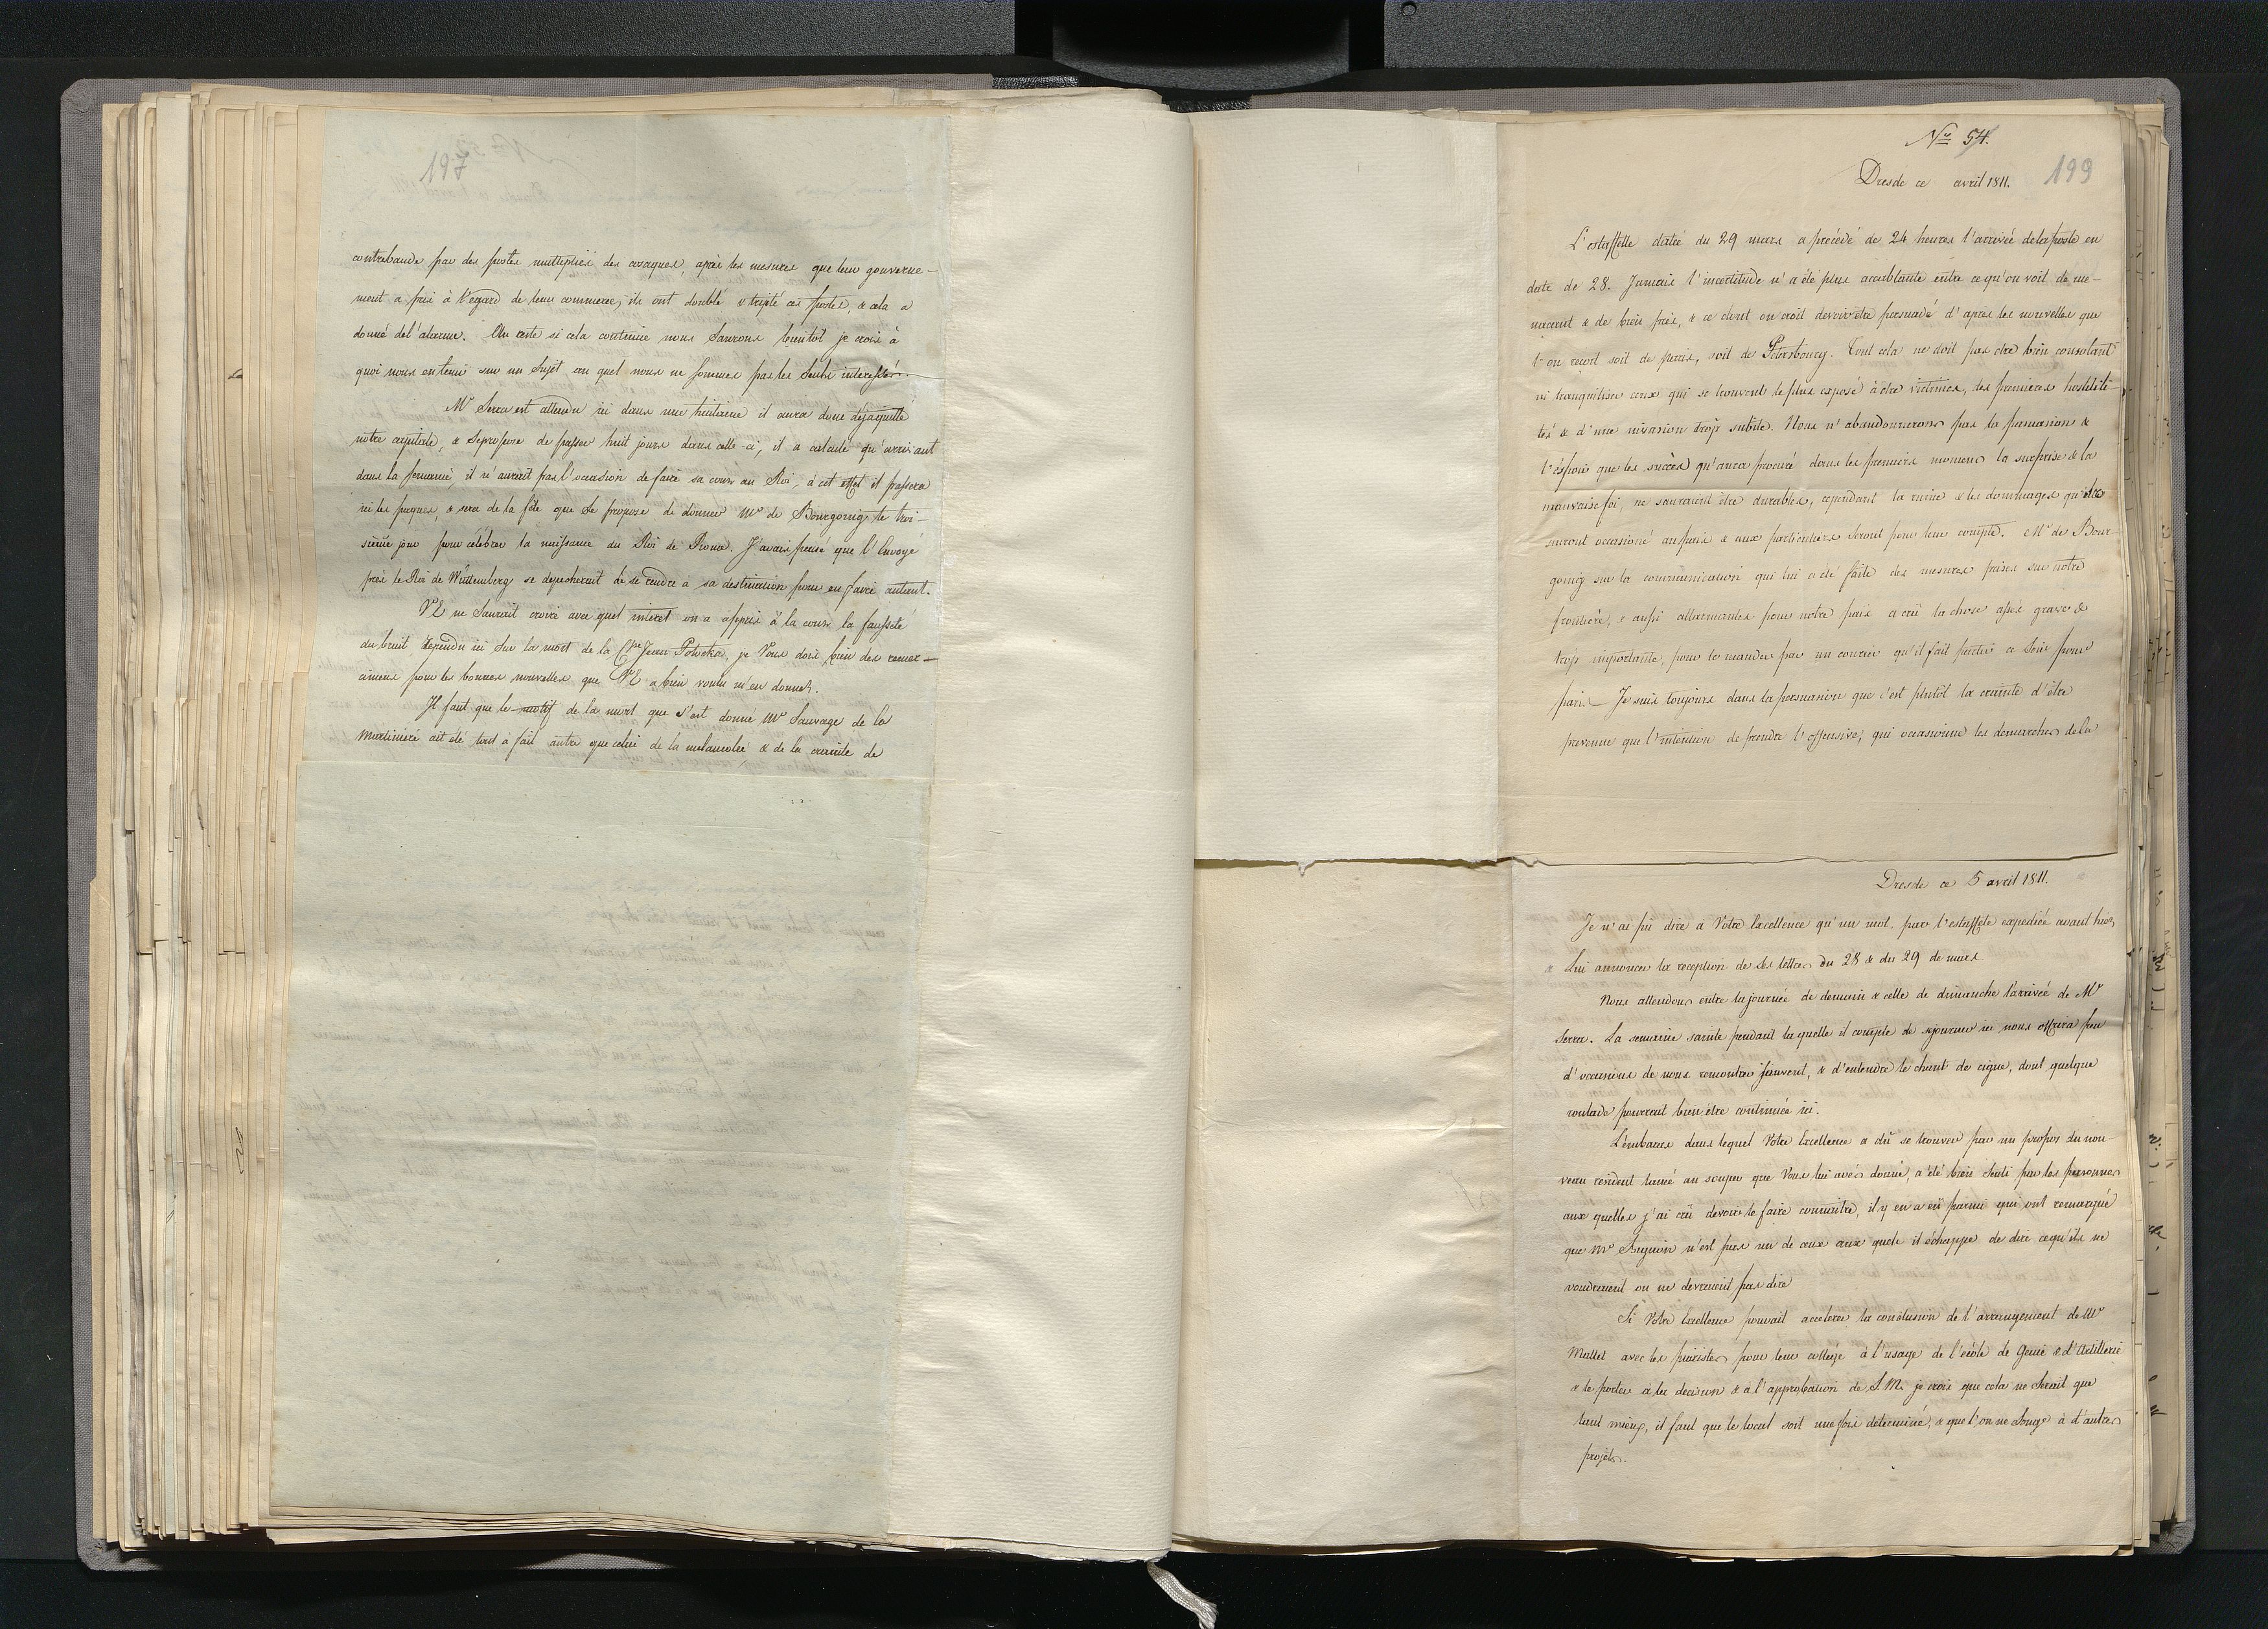 197
contrebande par des postes multipliés des cosaques, après les mesures que leur gouverne-
ment a pris à l'egard de leur commerce, ils ont doublé & triplé ces postes, & cela a
donné de l'alarme. Au reste si cela continue nous Saurons bientôt je crois à
quoi nous en tenir sur un Sujet au quel nous ne sommes pas les Seuls interessés.
Mr Serra est attendu ici dans une huitaine il aura donc déja quitté
notre capitale, & Se propose de passer huit jours dans celle-ci, il a calculé qu'arrivant
dans la semaine, il n'aurait pas l'occasion de faire sa cour au Roi, à cet effet il passera
ici les paques, & sera de la fête que Se propose de donner Mr de Bourgoing le troi-
sieme jour pour célébrer la naissance du Roi de Rome. J'avais pensé que l'Envoyé
près le Roi de Würtemberg se depecherait de se rendre à sa destination pour en faire autant.
VE ne Saurait croire avec quel interet on a appris à la cour la fausseté
du bruit repandu ici Sur la mort de la Ctsse Jean Potocka, je Vous dois bien des remer-
ciemens pour les bonnes nouvelles que VE a bien voulu m'en donner.
Il faut que le motif de la mort que s'est donné Mr Sauvage de la
Martiniere ait été tout à fait autre que celui de la melancolie & de la crainte de
No 54.
199
Dresde ce avril 1811.
L'estaffette datée du 29 mars a précédé de 24 heures l'arrivée de la poste en
date de 28. Jamais l'incertitude n'a été plus accablante entre ce qu'on voit de me-
nacant & de bien près, & ce dont on croit devoir etre persuadé d'après les nouvelles que
l'on recoit soit de paris, soit de Petersbourg. Tout cela ne doit pas etre bien consolant
ni tranquiliser ceux qui se trouvent le plus exposé à être victimes, des premieres hostilit-
tés & d'une invasion trop subite. Nous n'abandonnerons pas la persuasion &
l'éspoir que les succès qu'aura procuré dans les premiers momens la surprise & la
mauvaise foi, ne sauraient être durables, cependant la ruine & les dommages qu'ils
auront occasioné au pais & aux particuliers Seront pour leur compte. Mr de Bour-
going sur la communication qui lui a été faite des mesures prises sur notre
frontière, & aussi allarmantes pour notre pais a crû la chose assés grave &
trop importante, pour le mander par un courier qu'il fait partir ce Soir pour
paris. Je suis toujours dans la persuasion que c'est plutôt la crainte d'être
prevenue que l'intention de prendre l'offensive, qui occasionne les demarches de la
Dresde ce 5 avril 1811.
Je n'ai pû dire à Votre Excellence qu'un mot, par l'estaffete expediée avant hier,
& Lui annoncer la reception de Ses lettres du 28 & du 29 de mars.
Nous attendons entre la journée de demain & celle de dimanche l'arrivée de Mr
Serra. La semaine sainte pendant la quelle il compte de sejourner ici nous offrira peu
d'occasions de nous rencontrer souvent, & d'entendre le chant de cigne, dont quelque
roulade pourrait bien être continuée ici.
L'embarras dans lequel Votre Excellence a dû se trouver par un propos du nou-
veau resident lancé au souper que Vous lui avés donné, a été bien Senti par les personnes
aux quelles j'ai crû devoir le faire connaitre, il y en a eû parmi qui ont remarqué
que Mr Bignon n'est pas un de ceux aux quels il échappe de dire ce qu'ils ne
voudraient ou ne devraient pas dire
Si Votre Excellence pouvait accelerer la conclusion de l'arrangement de Mr
Mallet avec les piaristes pour leur collège à l'usage de l'école de Genie & d'Artillerie
& le porter à la decision & à l'approbation de S.M. je crois que cela ne Serait que
tant mieux, il faut que le local soit une fois déterminé, & que l'on ne Songe à d'autres
projets.